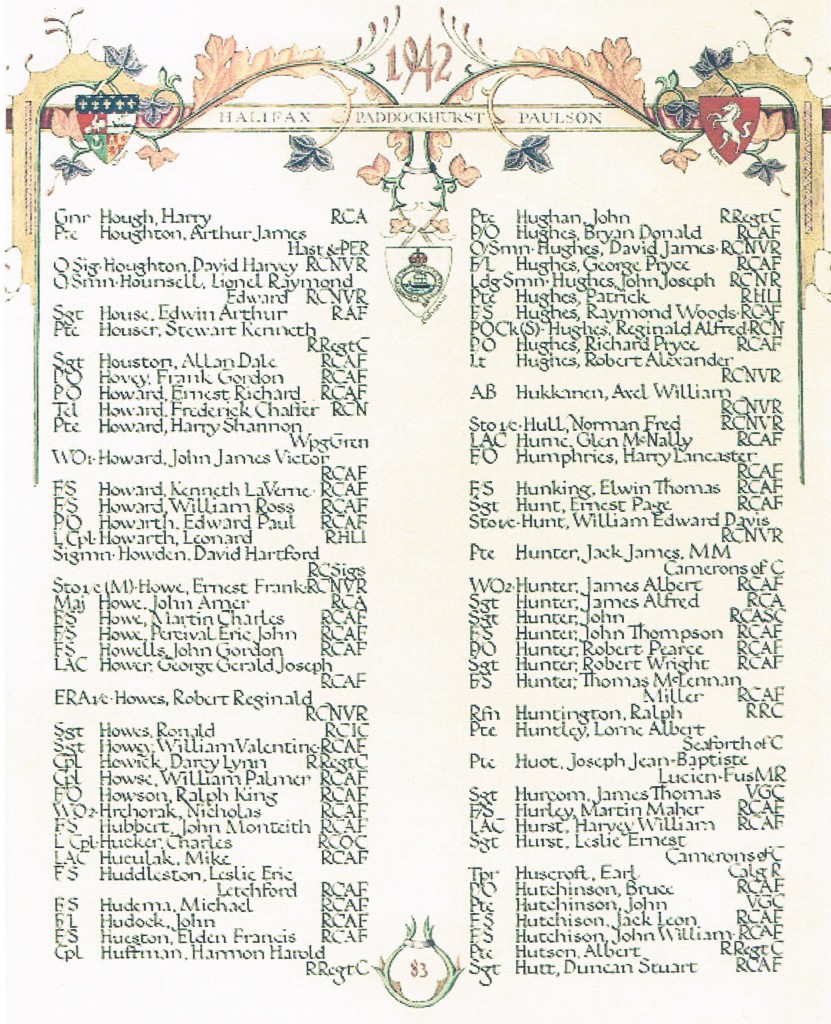 1942
HALIFAX PADDOCKHURST PAULSON
Gnr Hough, Harry RCA
Pte Houghton, Arthur James
Hast&PER
O Sig·Houghton, David Harvey RCNVR
O Smn·Hounsell, Lionel Raymond
Edward RCNVR
Sgt House, Edwin Arthur RAF
Pte Houser, Stewart Kenneth
RRegtC
Sgt Houston, Allan Dale RCAF
P/O Hovey, Frank Gordon RCAF
P/O Howard, Ernest Richard RCAF
Tel Howard, Frederick Chaffer RCN
Pte Howard, Harry Shannon
WpgGren
WO1·Howard, John James Victor
RCAF
F/S Howard, Kenneth LaVerne·RCAF
F/S Howard, William Ross RCAF
P/O Howarth, Edward Paul RCAF
L Cpl·Howarth, Leonard RHLI
Sigmn·Howden, David Hartford
RCSigs
Sto1/c(M)·Howe, Ernest Frank·RCNVR
Maj Howe, John Amer RCA
F/S Howe, Martin Charles RCAF
F/S Howe, Percival Eric John RCAF
F/S Howells, John Gordon RCAF
LAC Hower, George Gerald Joseph
RCAF
ERA4/c·Howes, Robert Reginald
RCNVR
Sgt Howes, Ronald RCIC
Sgt Howey, William Valentine·RCAF
Cpl Howick, Darcy Lynn RRegtC
Cpl Howse, William Palmer RCAF
F/O Howson, Ralph King RCAF
WO2·Hrehorak, Nicholas RCAF
F/S Hubbert, John Monteith RCAF
L Cpl·Hucker, Charles RCOC
LAC Huculak, Mike RCAF
F/S Huddleston, Leslie Eric
Letchford RCAF
F/S Hudema, Michael RCAF
F/L Hudock, John RCAF
F/S Hueston, Elden Francis RCAF
Cpl Huffman, Harmon Harold
RRegtC
Pte Hughan, John RRegtC
P/O Hughes, Bryan Donald RCAF
O/Smn·Hughes, David James·RCNVR
F/L Hughes, George Pryce RCAF
Ldg Smn·Hughes, John Joseph RCNR
Pte Hughes, Patrick RHLI
F/S Hughes, Raymond Woods·RCAF
POCk(S)·Hughes, Reginald Alfred·RCN
P/O Hughes, Richard Pryce RCAF
Lt Hughes, Robert Alexander
RCNVR
AB Hukkanen, Axel William
RCNVR
Sto1/c·Hull, Norman Fred RCNVR
LAC Hume, Glen McNally RCAF
F/O Humphries, Harry Lancaster
RCAF
F/S Hunking, Elwin Thomas RCAF
Sgt Hunt, Ernest Page RCAF
Sto1/c·Hunt, William Edward Davis
RCNVR
Pte Hunter, Jack James, MM
Camerons of C
WO2·Hunter, James Albert RCAF
Sgt Hunter, James Alfred RCA
Sgt Hunter, John RCASC
F/S Hunter, John Thompson RCAF
P/O Hunter, Robert Pearce RCAF
Sgt Hunter, Robert Wright RCAF
F/S Hunter, Thomas McLennan
Miller RCAF
Rfn Huntington, Ralph RRC
Pte Huntley, Lorne Albert
Seaforth of C
Pte Huot, Joseph Jean-Baptiste
Lucien·FusMR
Sgt Hurcom, James Thomas VGC
F/S Hurley, Martin Maher RCAF
LAC Hurst, Harvey William RCAF
Sgt Hurst, Leslie Ernest
Camerons of C
Tpr Huscroft, Earl Calg R
P/O Hutchinson, Bruce RCAF
Pte Hutchinson, John VGC
F/S Hutchison, Jack Leon RCAF
F/S Hutchison, John William·RCAF
Pte Hutson, Albert RRegtC
Sgt Hutt, Duncan Stuart RCAF
83